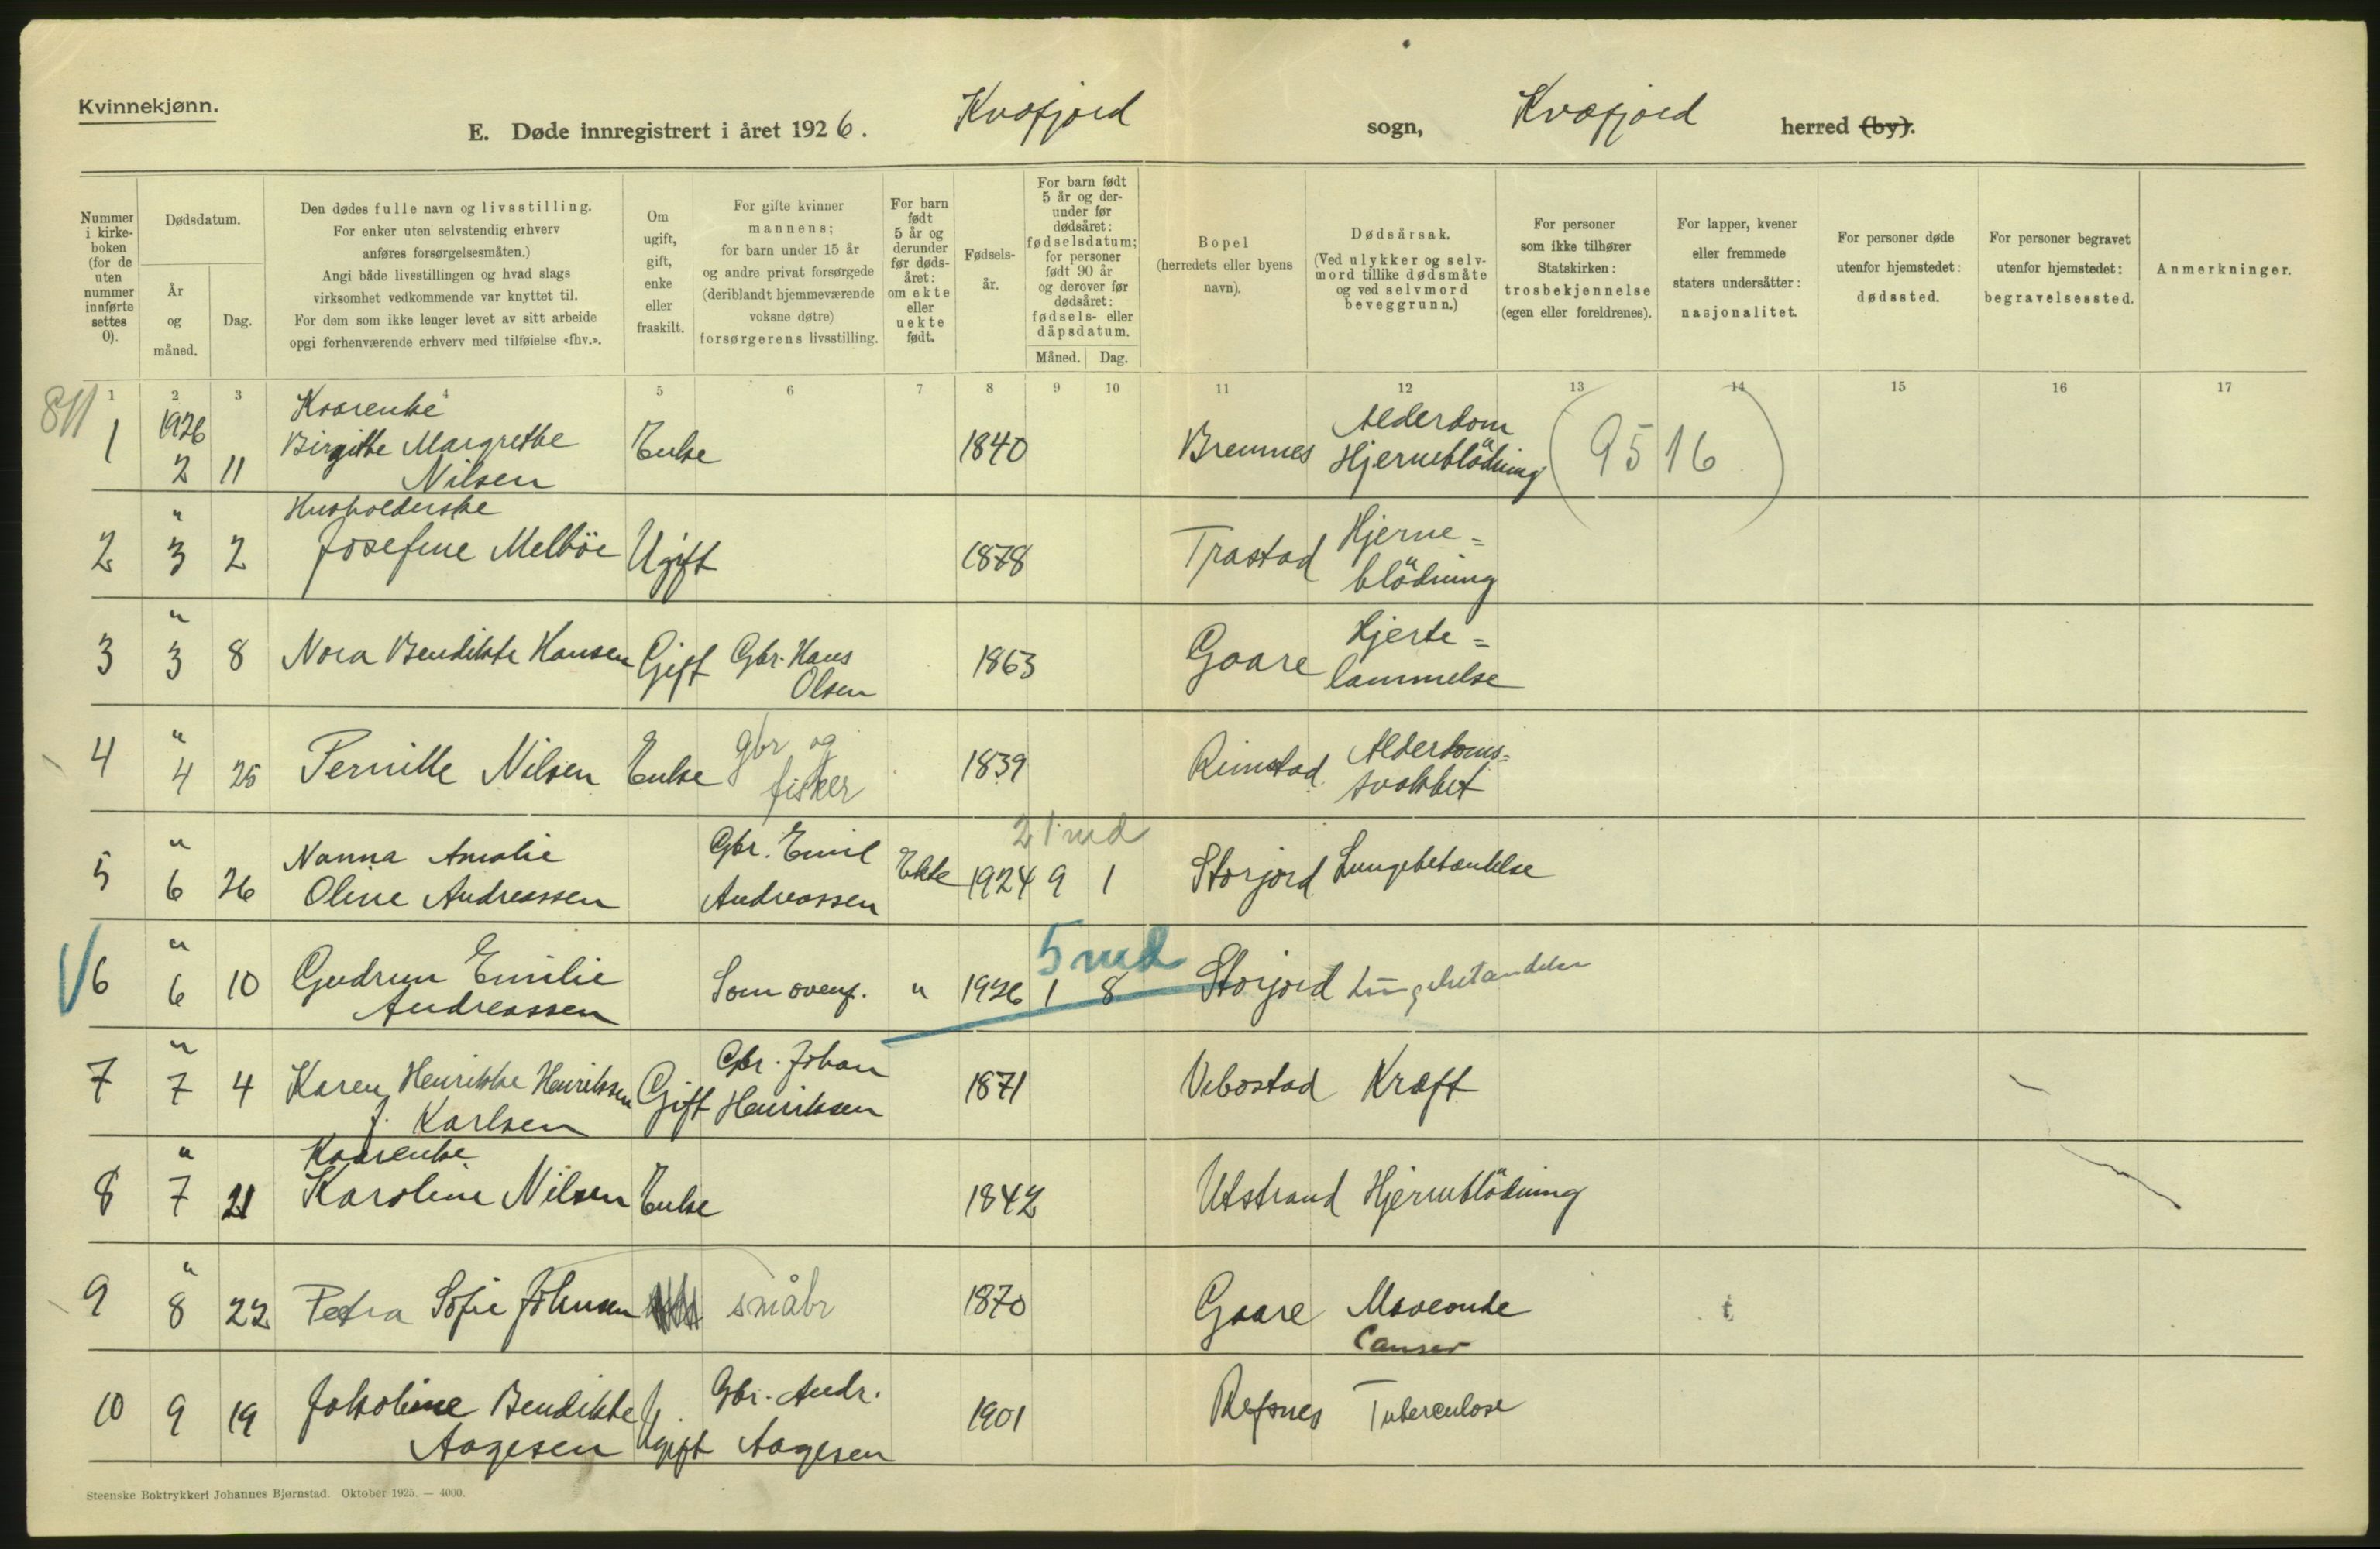 Kvinnekjønn.
E. Døde innregistrert i året 1926. Kvæfjord sogn, Kvæfjord herred (by).
Nummer i kirkeboken (for de uten nummer innførte settes 0).
Dødsdatum.
År og måned.
Dag.
Den dødes fulle navn og livsstilling.
For enker uten selvstendig erhverv
anføres forsørgelsesmåten.)
Angi både livsstillingen og hvad slags
virksomhet vedkommende var knyttet til.
For dem som ikke lenger levet av sitt arbeide
opgi forhenværende erhverv med tilføielse «fhv.».
Om ugift, gift, enke eller fraskilt.
For gifte kvinner
mannens;
for barn under 15 år
og andre privat forsørgede
(deriblandt hjemmeværende
voksne døtre)
forsørgerens livsstilling.
For barn født 5 år og derunder før dødsåret: om ekte eller uekte født.
Fødselsår.
For barn født 5 år og derunder før dødsåret: fødselsdatum; for personer født 90 år og derover før dødsåret: fødsels- eller dåpsdatum.
Måned. Dag.
Bopel
(herredets eller byens
navn).
Dødsårsak.
(Ved ulykker og selvmord tillike dødsmåte og ved selvmord beveggrunn.)
For personer
som ikke tilhører
Statskirken:
trosbekjennelse
(egen eller foreldrenes).
For lapper, kvener
eller fremmede
staters undersåtter:
nasjonalitet.
For personer døde
utenfor hjemstedet:
dødssted.
For personer begravet
utenfor hjemstedet:
begravelsessted.
Anmerkninger.
1 2 3 4 5 6 7 8 9 10 11 12 13 14 15 16 17
811
Kaarenke Alderdom
1 1926 2 11 Birgitte Margrethe Nilsen Enke 1840 Bremnes Hjerneblödning (9516)
Husholderske
2 " 3 2 Josefine Melböe Ugift 1878 Trastad Hjerne=
blödning
3 " 3 8 Nora Bendikte Hansen Gift Gbr. Hans Olsen 1863 Gaare Hjerte=
lammelse
4 " 4 25 Pernille Nilsen Enke gbr og fisker 1839 Rimstad Alderdoms=
svakhet
21 md
5 " 6 26 Nanna Amalie
Oline Andreassen Gbr. Emil Andreassen Ekte 1924 9 1 Storjord Lungebetændelse
5 md
6 " 6 10 Gudrun Emilie
Andreassen Som ovenf. " 1926 1 8 Storjord Lungebetændelse
7 " 7 4 Karen Henrikke Henriksen
f. Karlsen Gift Gbr. Johan Henriksen 1871 Vebostad Kræft
Kaarenke
8 " 7 21 Karoline Nilsen Enke 1842 Utstrand Hjerneblödning
9 " 8 22 Petra Sofie Johnsen småbr 1870 Gaare Maveonde
Canser
10 9 19 Jakoline Bendikte
Aagesen Ugift Gbr. Andr. Aagesen 1901 Refsnes Tuberculose
Steenske Boktrykkeri Johannes Bjørnstad. Oktober 1925. — 4000.